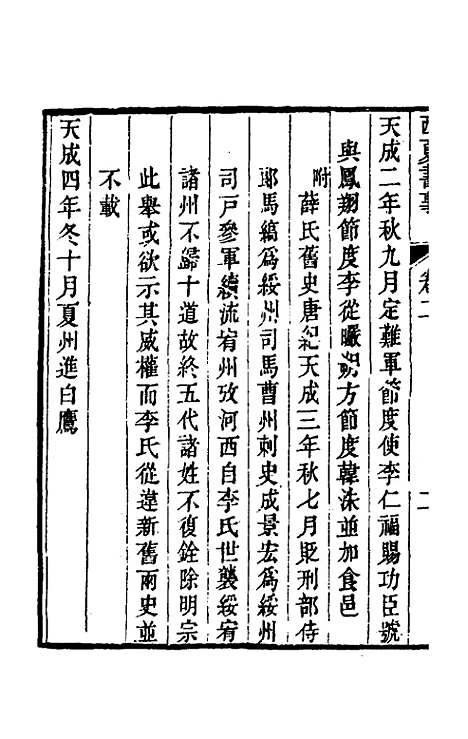 西夏書事
卷二
二
天成二年秋九月定難軍節度使李仁福賜功臣號
與鳳翔節度李從曮朔方節度韓洙並加食邑
附薛氏舊史唐紀天成三年秋七月貶刑部侍
郎馬縞爲綏州司馬曹州刺史成景宏爲綏州
司戶參軍續流宥州攷河西自李氏世襲綏宥
諸州不歸十道故終五代諸姓不復銓除明宗
此舉或欲示其威權而李氏從違新舊兩史並
不載
天成四年冬十月夏州進白鷹